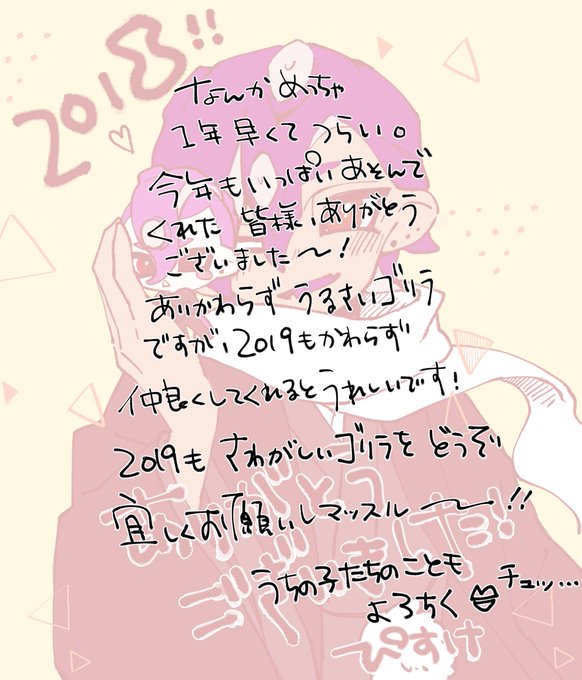 2018!!
なんかめっちゃ
1年早くてつらい。
今年もいっぱいあそんで
くれた皆様、ありがとう
ございました〜!
あいかわらずうるさいゴリラ
ですが、2019もかわらず
仲良くしてくれるとうれしいです!
2019もさわがしいゴリラをどうぞ
宜しくお願いしマッスル〜!!
ありがとう
ございました!!
うちの子たちのことも
よろちく チュッ...
ぴすけ